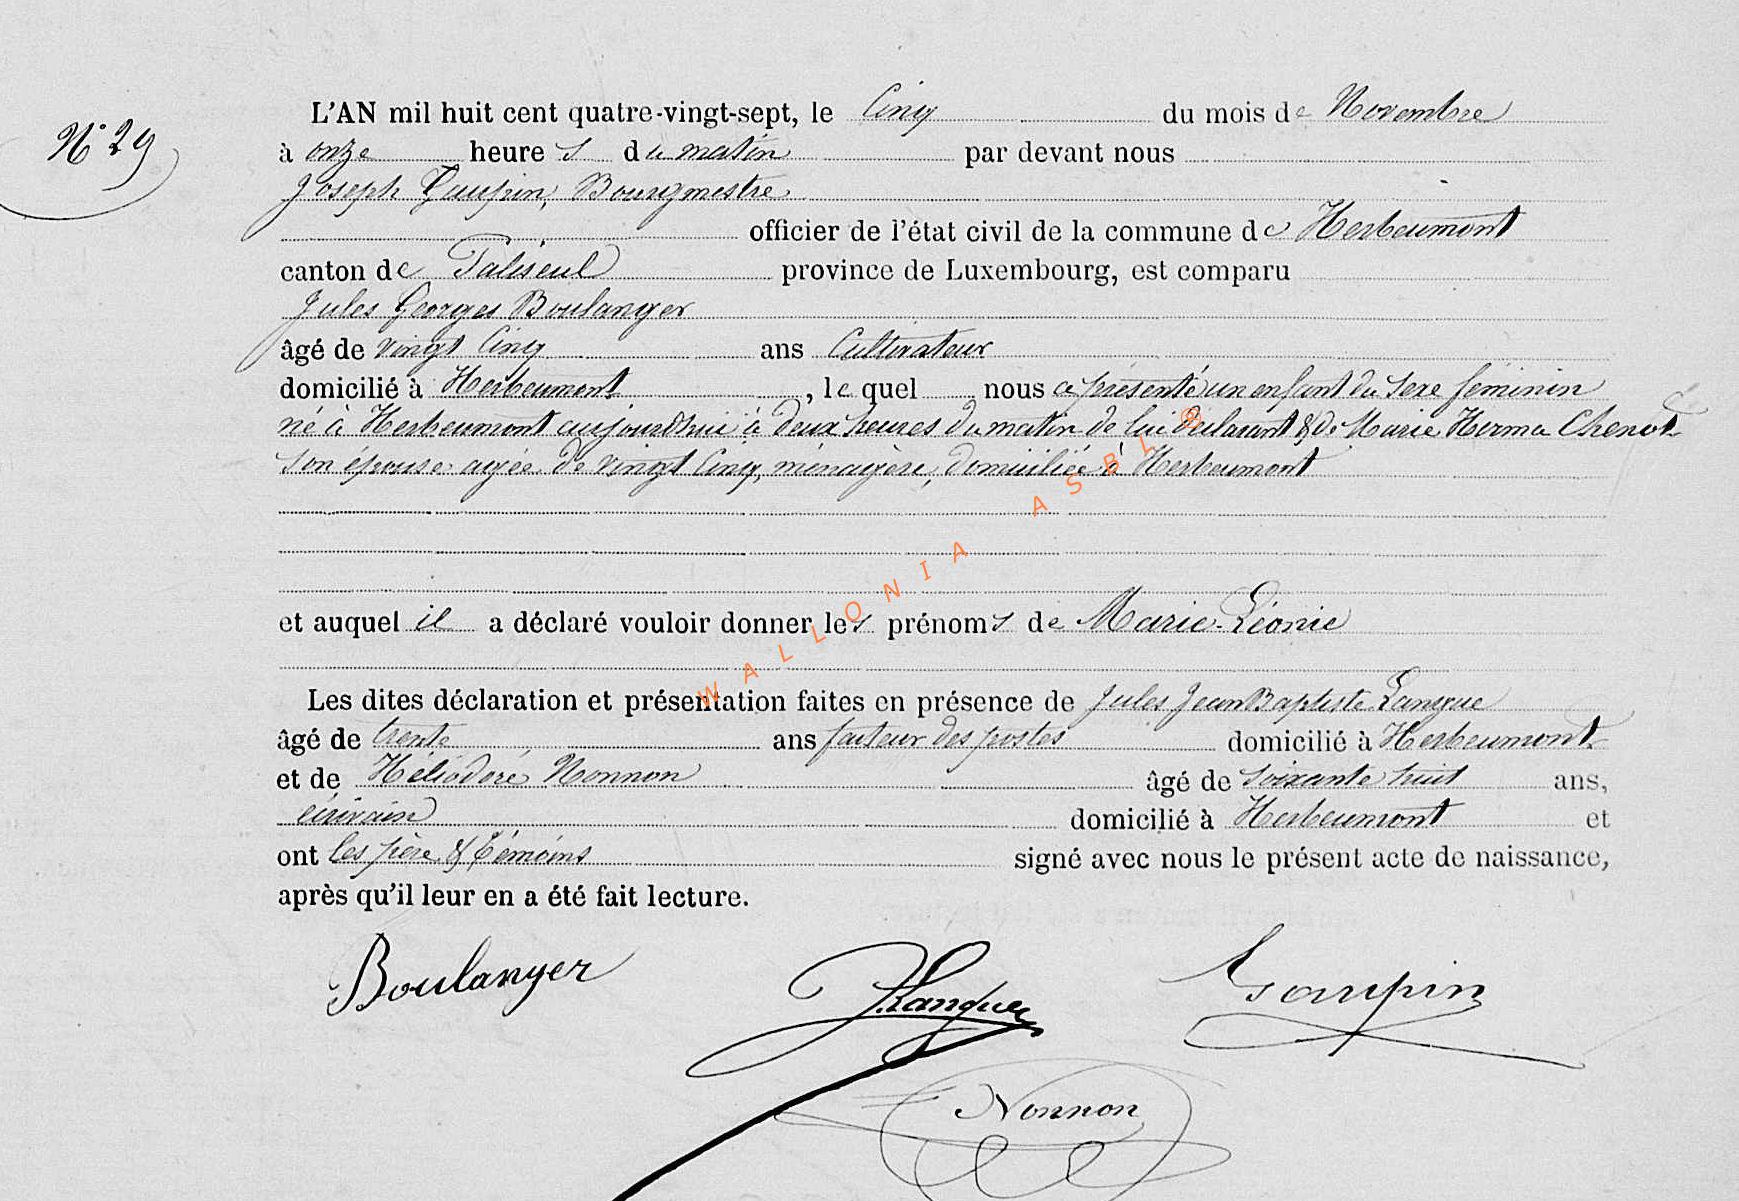 N° 29
L'AN mil huit cent quatre-vingt-sept, le Cinq du mois de Novembre
à onze heures du matin par devant nous
Joseph Gaupin, Bourgmestre
officier de l'état civil de la commune de Herbeumont
canton de Paliseul province de Luxembourg, est comparu
Jules Georges Boulanger
âgé de vingt Cinq ans Cultivateur
domicilié à Herbeumont, lequel nous a présenté un enfant du sexe féminin
né à Herbeumont aujourd'hui à deux heures du matin de lui déclarant & de Marie Irma Chenot
son épouse agée de vingt Cinq, ménagère, domiciliée à Herbeumont
et auquel il a déclaré vouloir donner les prénoms de Marie-Léonie
Les dites déclaration et présentation faites en présence de Jules Jean Baptiste Langue
âgé de trente ans facteur des postes domicilié à Herbeumont
et de Héliodore Nonnon âgé de soixante huit ans,
écrivain domicilié à Herbeumont et
ont les père & témoins signé avec nous le présent acte de naissance,
après qu'il leur en a été fait lecture.
Boulanger J. Langue Gaupin
Nonnon
WALLONIA ASBL ®